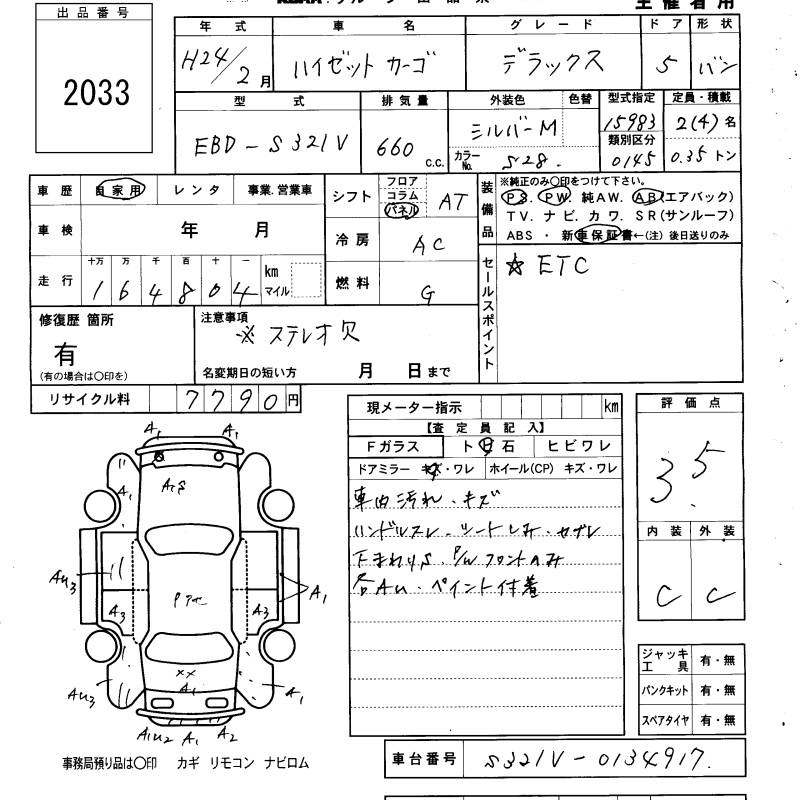 主催者用
出品番号
2033
年式 車名 グレード ドア 形状
H24/2月 ハイゼットカーゴ デラックス 5 バン
型式 排気量 外装色 色替 型式指定 定員・積載
EBD-S321V 660 c.c. シルバーM 15983 2(4)名
カラーNo. S28. 類別区分 0145 0.35トン
車歴 自家用 レンタ 事業.営業車
シフト フロア コラム パネル AT
装備品 ※純正のみ〇印をつけて下さい。
PS. PW. 純AW. AB(エアバック)
TV. ナビ. カワ. SR(サンルーフ)
ABS ・ 新車保証書←(注) 後日送りのみ
車検 年 月
冷房 AC
走行 十万 万 千 百 十 一 km マイル
164804
燃料 G
セールスポイント ☆ETC
修復歴 箇所
有
(有の場合は〇印を)
注意事項
※ステレオ欠
名変期日の短い方 月 日まで
リサイクル料 7790円
現メーター指示 km
【査定員記入】
Fガラス ト日石 ヒビワレ
ドアミラー キズ・ワレ ホイール(CP) キズ・ワレ
車内汚れ・キズ
ハンドルスレ・シートしみ・セブレ
下まわりS. P/Wフロントのみ
各AU・ペイント付着
評価点
3.5
内装 外装
C C
ジャッキ工具 有・無
パンクキット 有・無
スペアタイヤ 有・無
A1 A1
A1 A1S
AU3 A3 A3 A1
AU3 XX A1 A1
A1U2 A1 A2
事務局預り品は〇印 カギ リモコン ナビロム
車台番号 S321V-0134917.